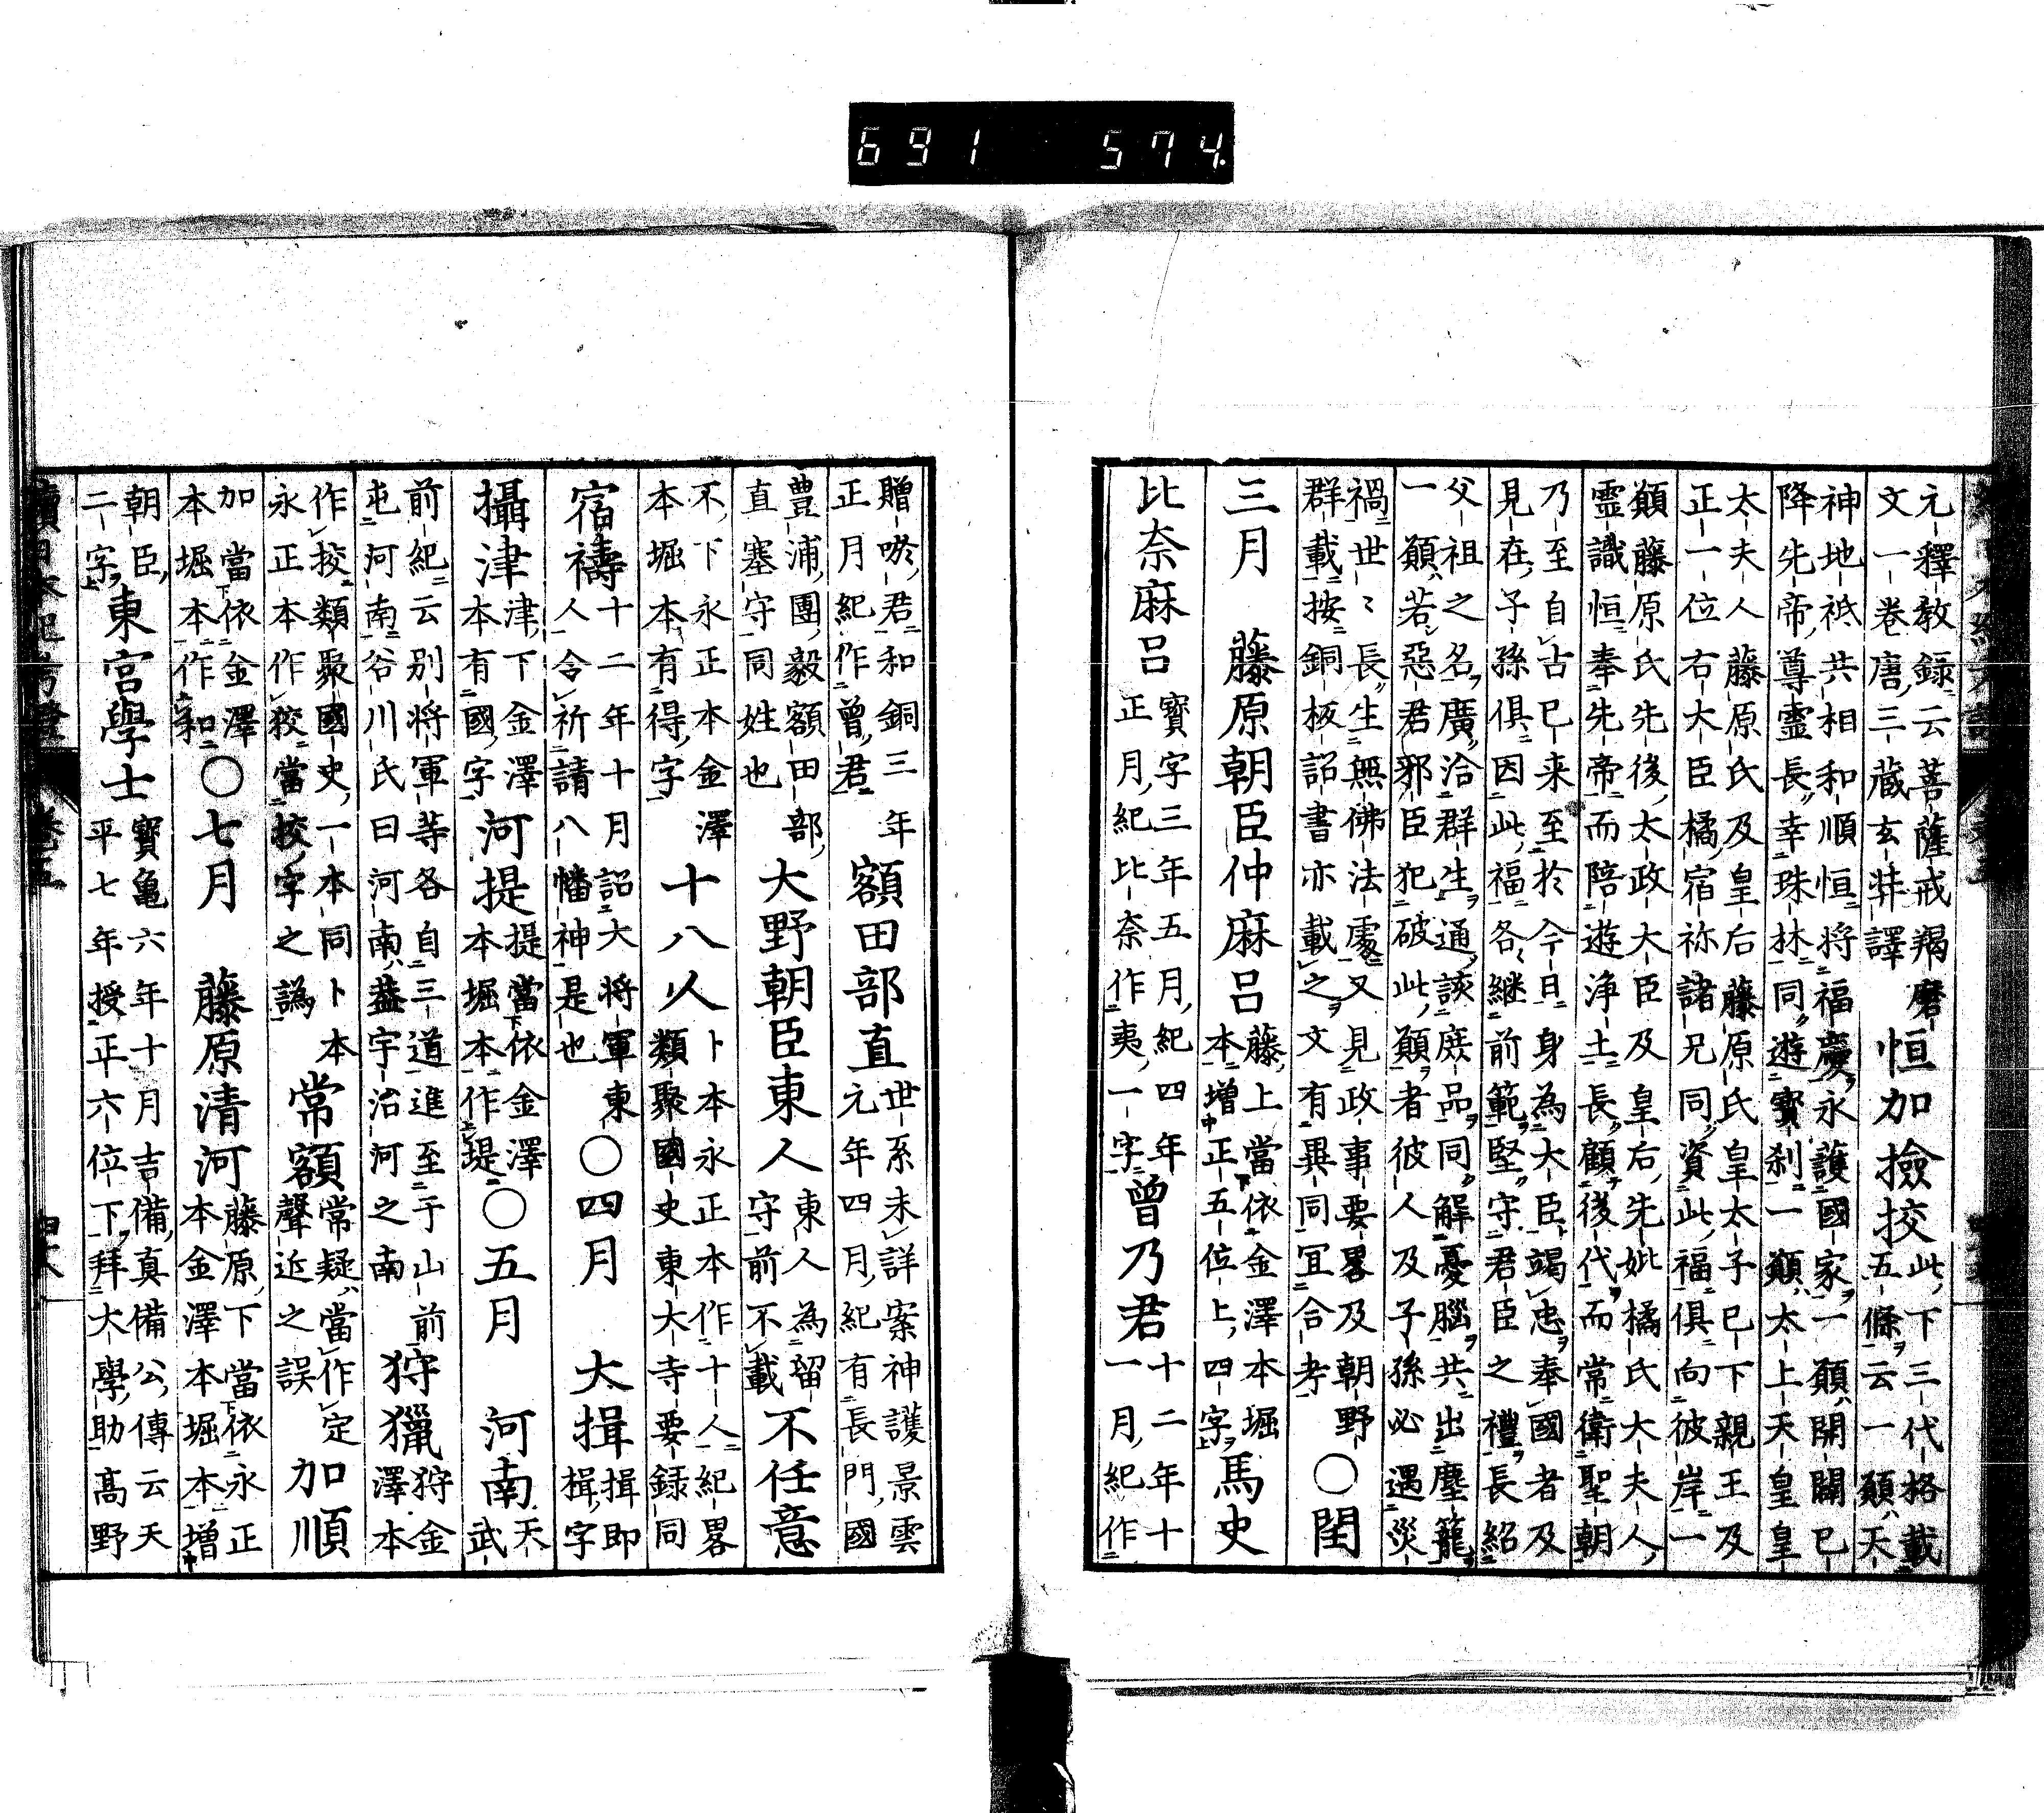 691 574
元釋教録云菩薩戒羯磨
文一巻唐三藏玄弉譯
恒加撿挍
此下三代格載
五條云一願天
神地祇共相和順恒將福慶永護國家一願開闢已
降先帝尊靈長幸珠林同遊寶刹一願太上天皇皇
太夫人藤原氏及皇后藤原氏皇太子已下親王及
正一位右大臣橘宿祢諸兄同資此福俱向彼岸一
願藤原氏先後太政大臣及皇后先妣橘氏大夫人
靈識恒奉先帝而陪遊浄土長顧後代而常衛聖朝
乃至自古已来至於今日身為大臣竭忠奉國者及
見在子孫俱因此福各継前範堅守君臣之禮長紹
父祖之名廣洽群生通該庶品同解憂腦共出塵籠
一願若惡君邪臣犯破此願者彼人及子孫必遇災
禍世〻長生無佛法處又見政事要畧及朝野
群載按銅板詔書亦載之文有異同宜合考
〇閏
三月　藤原朝臣仲麻呂
藤上當依金澤本堀
本增正五位上四字
馬史
比奈麻呂
寶字三年五月紀四年
正月紀比奈作夷一字
曾乃君
十二年十
一月紀作
贈唹君和銅三年
正月紀作曾君
額田部直
世系未詳案神護景雲
元年四月紀有長門國
豊浦團毅額田部
直塞守同姓也
大野朝臣東人
東人為留
守前不載
不任意
不下永正本金澤
本堀本有得字
十八人
卜本永正本作十人紀畧
類聚國史東大寺要録同
宿禱
十二年十月詔大將軍東
人令祈請八幡神是也
〇四月　大揖
揖即
揖字
攝津
津下金澤
本有國字
河提
提當依金澤
本堀本作堤
〇五月　河南
天
武
前紀云别将軍等各自三道進至于山前
屯河南谷川氏曰河南蓋宇治河之南
狩獵
狩金
澤本
作挍類聚國史一本同卜本
永正本作狡當挍字之譌
常額
常疑當作定
聲近之誤
加順
加當依金澤
本堀本作和
〇七月　藤原清河
藤原下當依永正
本金澤本堀本增
朝臣
二字
東宮學士
寶亀六年十月吉備真備公傳云天
平七年授正六位下拜大學助高野